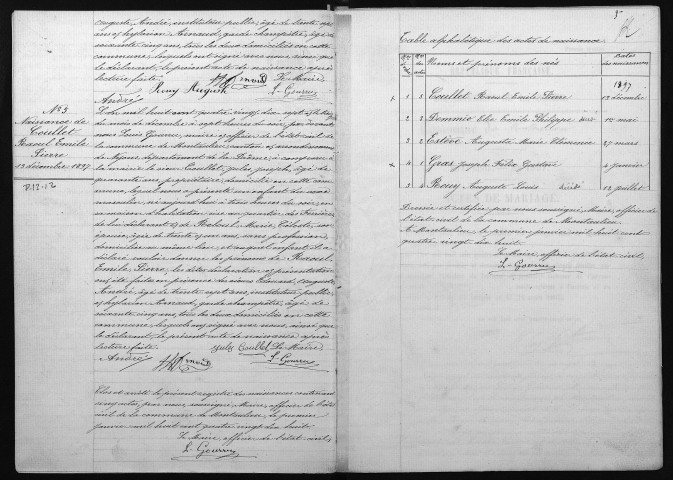 Auguste, André, instituteur public, âgé de trente sept
ans et Hylarion Arnaud, garde champêtre, âgé de
soixante cinq ans, tous les deux domiciliés en cette
commune, lesquels ont signé avec nous ainsi que
le déclarant, le présent acte de naissance après
lecture faite.
Rouy Auguste
Arnaud Le Maire
André L. Gourru
N° 5
Naissance de
Coullet
Raoul Emile
Pierre
13 décembre 1897
L'an mil huit cent quatre vingt dix sept et le treize
du mois de décembre à sept heures du soir, par devant
nous Louis Gourru, maire, officier de l'état civil de
la commune de Montaulieu, canton et arrondissement
de Nyons, département de la Drôme, a comparu à
la mairie le sieur Coullet, Jules, Joseph, âgé de
quarante ans, propriétaire, domicilié en cette com-
mune, lequel nous a présenté un enfant du sexe
masculin, né aujourd'hui à trois heures du soir, en
sa maison d'habitation sise au quartier des
de lui déclarant et de Reboul, Marie, Céleste, son
épouse, âgée de trente et un ans, sans profession,
domiciliée au même lieu, et auquel enfant il a
déclaré vouloir donner les prénoms de Raoul,
Emile, Pierre, les dites déclaration et présentation
ont été faites en présence des sieurs Edouard, Auguste,
André, âgé de trente sept ans, instituteur public,
et Hylarion Arnaud, garde champêtre, âgé de
soixante cinq ans, tous les deux domiciliés en cette
commune, lesquels ont signé avec nous, ainsi que
le déclarant, le présent acte de naissance après
lecture faite. Jules Coullet Le Maire
André Arnaud L. Gourru
Clos et arrêté le présent registre des naissances contenant
cinq actes, par nous, soussigné, Maire, officier de l'état
civil de la commune de Montaulieu, le premier
janvier mil huit cent quatre vingt dix huit.
Le Maire, officier de l'état civil,
L. Gourru
Table alphabétique des actes de naissance
Noms et prénoms des nés
Dates des naissances
1897
1 5 Coullet Raoul Emile Pierre 13 décembre
2 3 Dominio Elie Emile Philippe 12 mai
3 2 Estève Augusta Marie Clémence 27 mars
4 1 Gras Joseph Félix Gustave 4 janvier
5 4 Rouy Auguste Louis 12 juillet
Dressée et certifiée par nous soussigné, Maire, officier de
l'état civil de la commune de Montaulieu.
A Montaulieu, le premier janvier mil huit cent
quatre vingt dix huit.
Le Maire officier de l'état civil,
L. Gourru